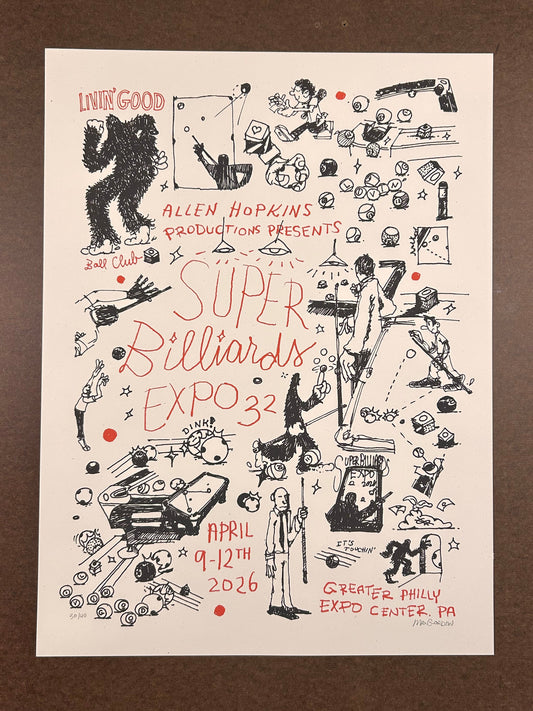 LIVIN' GOOD
Ball Club
ALLEN HOPKINS
PRODUCTIONS PRESENTS
SUPER
Billiards
EXPO 32
DINK!
SUPER BILLIARDS
EXPO
IT'S
TOUCHIN'
APRIL
9-12TH
2026
GREATER PHILLY
EXPO CENTER. PA